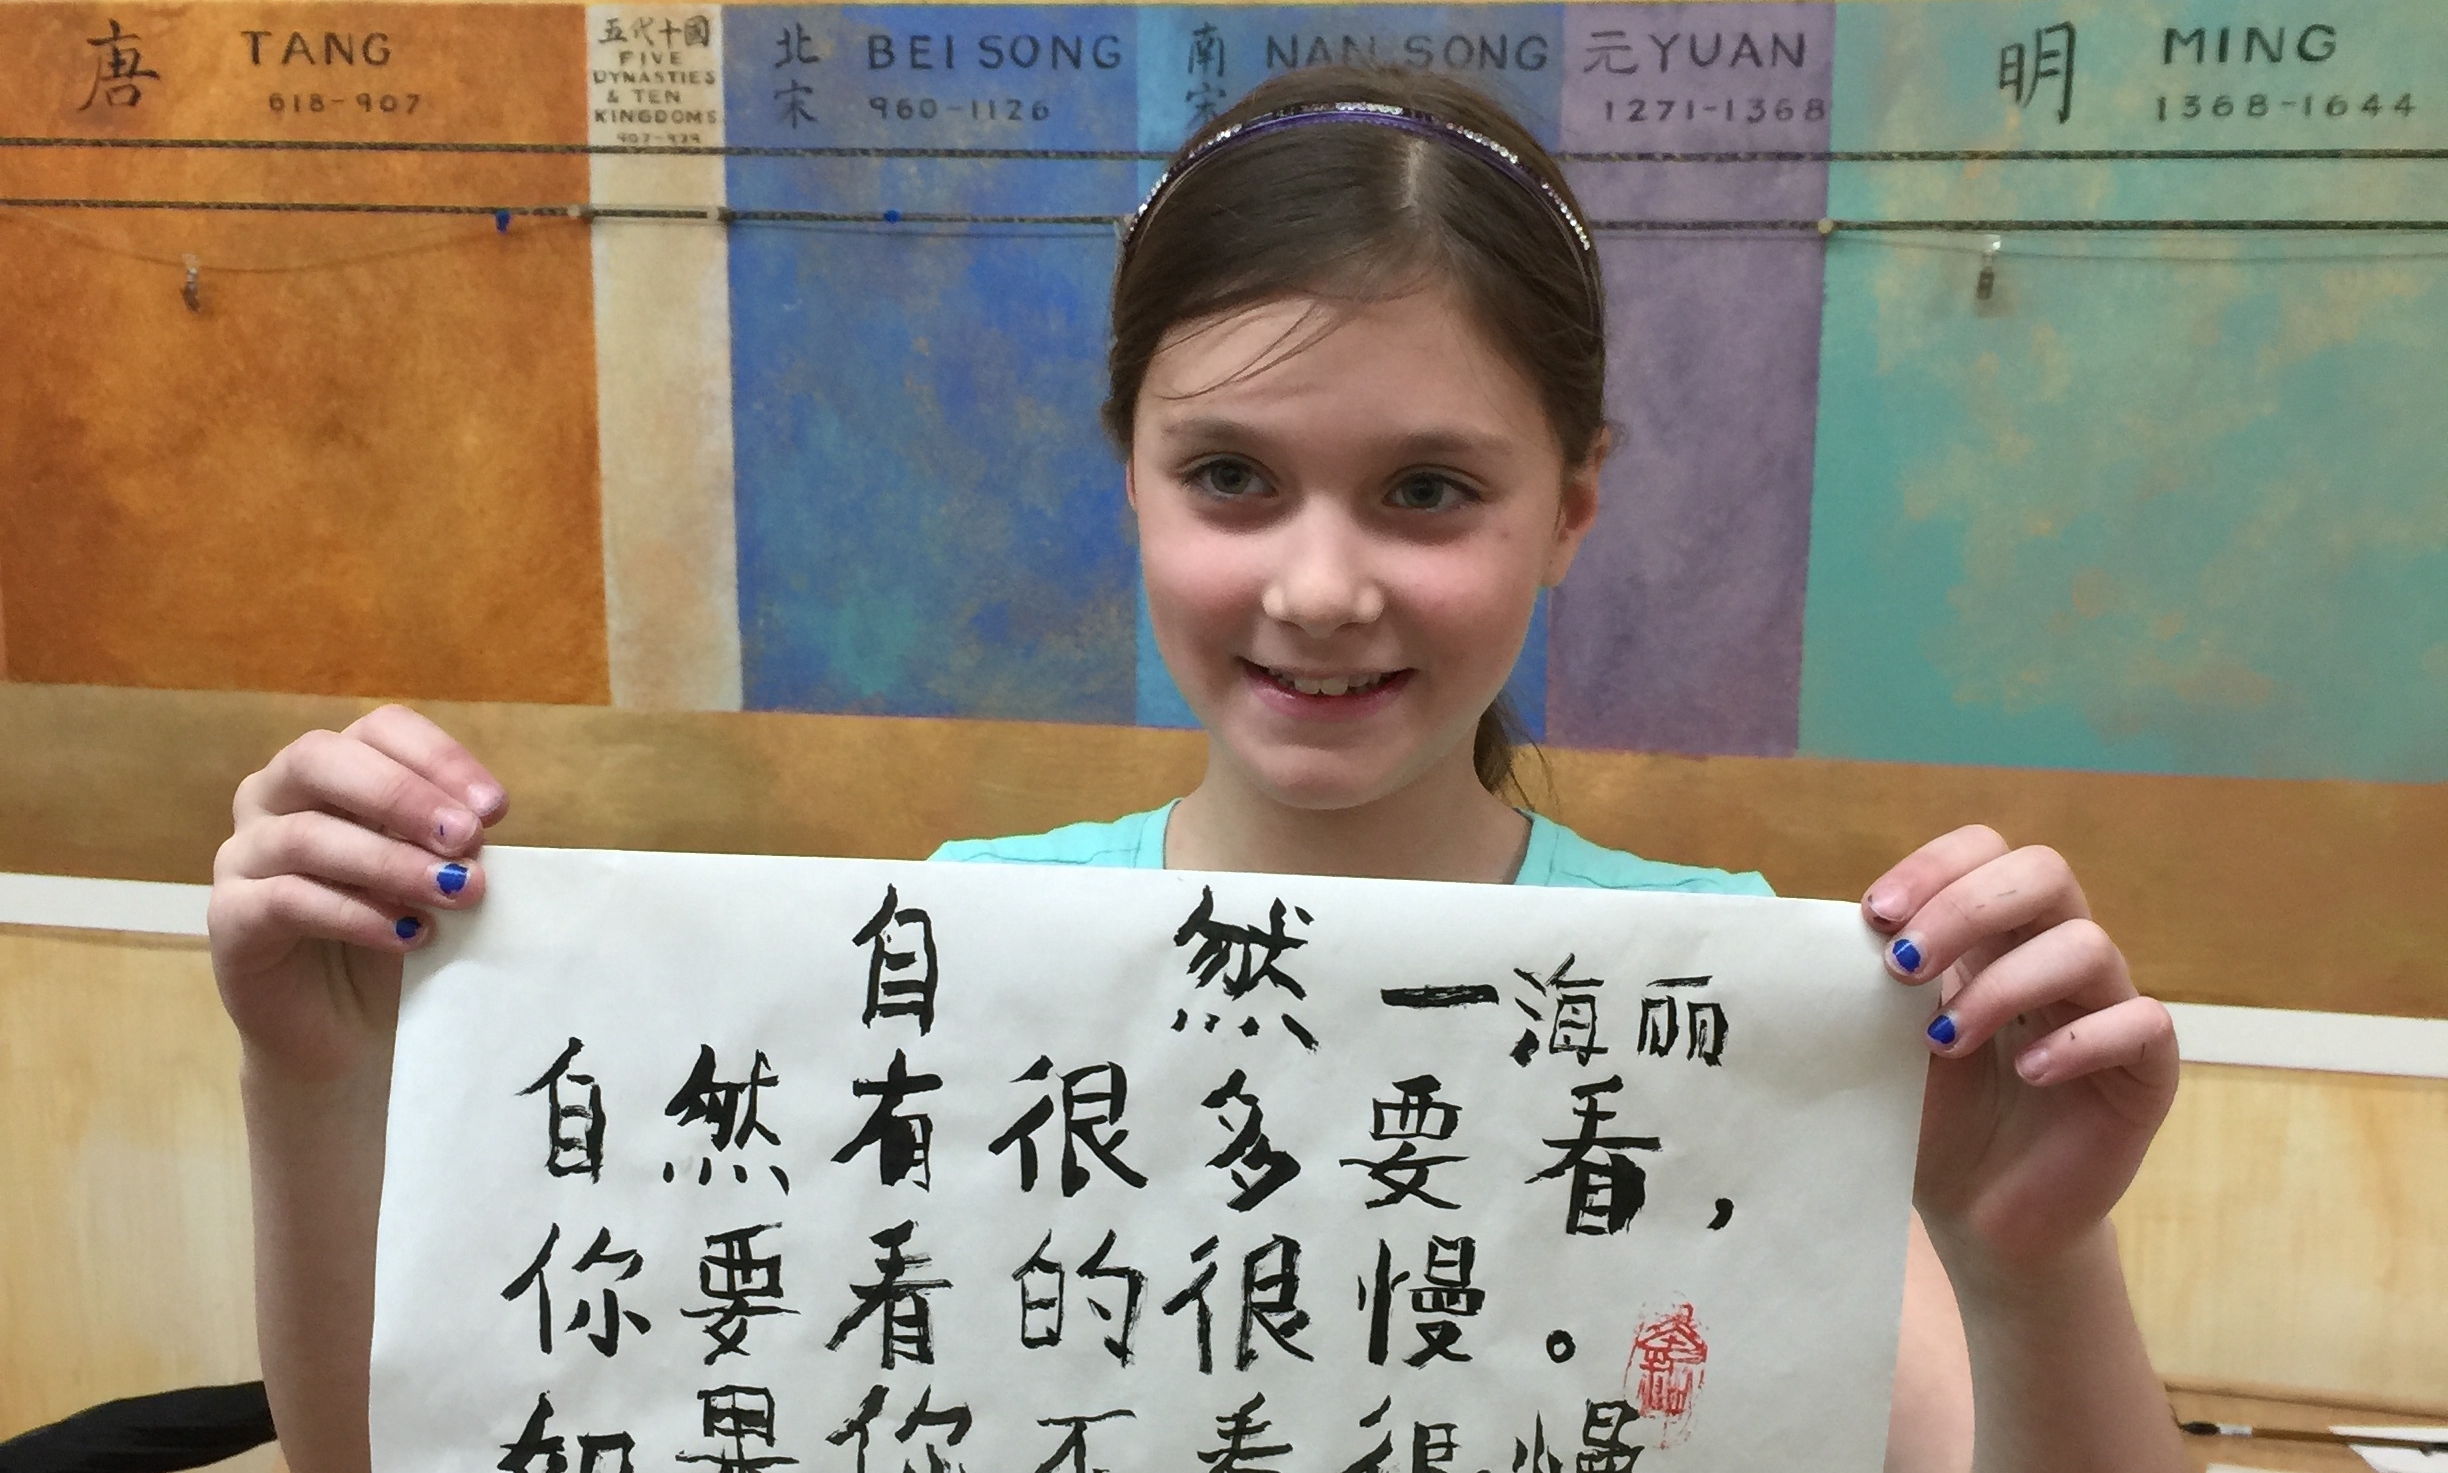 唐 TANG
618-907
五代十國
FIVE
DYNASTIES
& TEN
KINGDOMS
907-979
北宋 BEI SONG
960-1126
南宋 NAN SONG
元 YUAN
1271-1368
明 MING
1368-1644
自然一海丽
自然有很多要看，
你要看的很慢。
如果你不看很慢